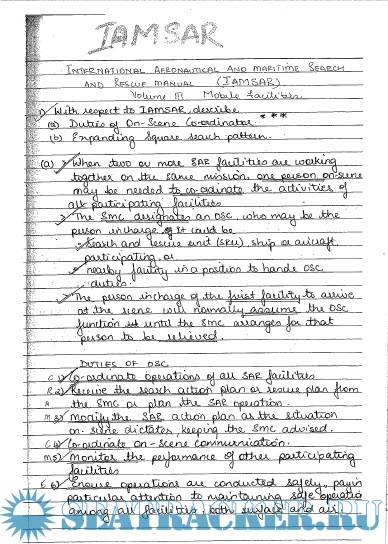 IAMSAR
INTERNATIONAL AERONAUTICAL AND MARITIME SEARCH
AND RESCUE MANUAL (IAMSAR)
VOLUME III Mobile Facilities.
1) With respect to IAMSAR, describe ***
(a) Duties of On-Scene Co-ordinator
(b) Expanding Square search pattern.
(a) 1) When two or more SAR facilities are working
together on the same mission, one person on-scene
may be needed to co-ordinate the activities of
all participating facilities
2) The SMC designates an OSC, who may be the
person incharge of it could be
search and rescue unit (SRU) ship or aircraft
participating, or
nearby facility in a position to handle OSC
duties.
The person incharge of the first facility to arrive
at the scene will normally assume the OSC
function until the SMC arranges for that
person to be relieved.
DUTIES OF OSC
C 1) Co-ordinate operations of all SAR facilities
R 2) Receive the search action plan or rescue plan from
the SMC or plan the SAR operation.
M 3) Modify the SAR action plan as the situation
on-scene dictates, keeping the SMC advised.
C 4) Co-ordinate on-scene communication.
M 5) Monitor the performance of other participating
facilities
E 6) Ensure operations are conducted safely, paying
particular attention to maintaining safe operation
among all facilities, both surface and air.
SEATRACKER.RU